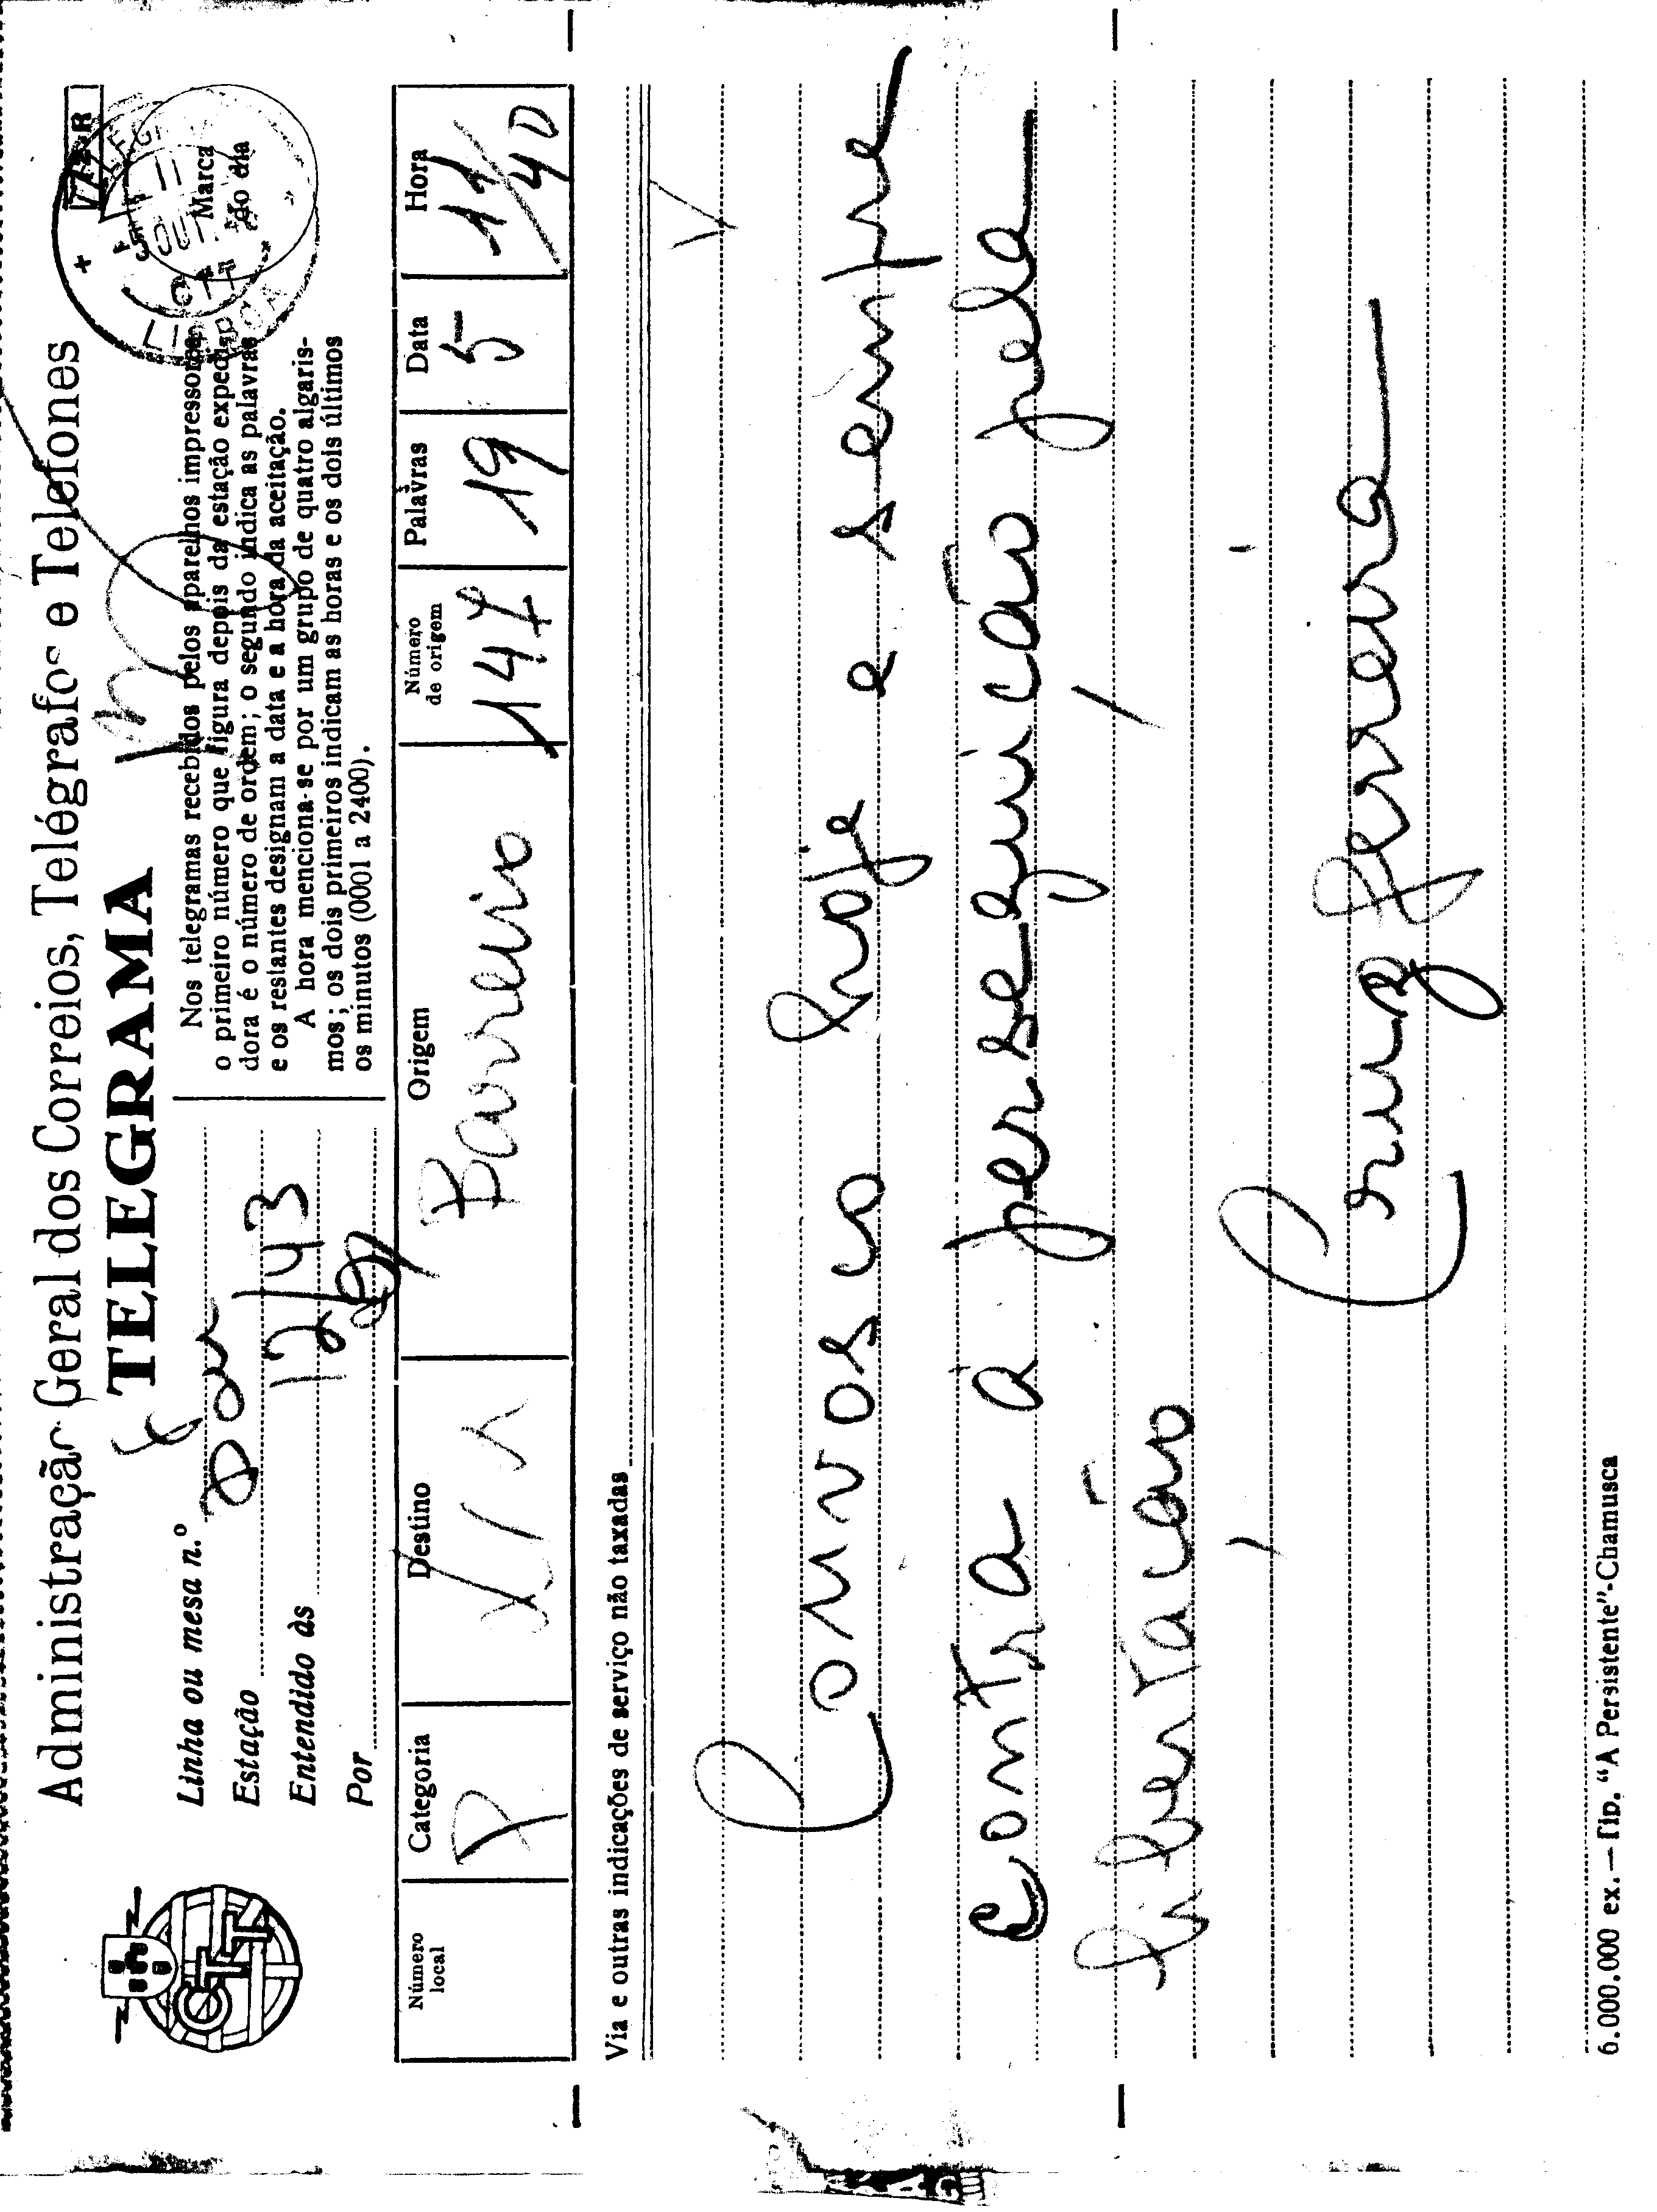 Administração Geral dos Correios, Telégrafos e Telefones
TELEGRAMA
Linha ou mesa n.º
Estação
Entendido às 12/43
Por
Nos telegramas recebidos pelos aparelhos impressores,
o primeiro número que figura depois da estação expedi-
dora é o número de ordem; o segundo indica as palavras
e os restantes designam a data e a hora da aceitação.
A hora menciona-se por um grupo de quatro algaris-
mos; os dois primeiros indicam as horas e os dois últimos
os minutos (0001 a 2400).
Marca
do dia
LISBOA
CTT
OUT.
Número local Categoria Destino Origem Número de origem Palavras Data Hora
P Lx Barreiro 147 19 5 11/40
Via e outras indicações de serviço não taxadas
Convosco hoje e sempre
Contra a perseguicão pela
libertacão
Cruz ferreira
6.000.000 ex. — Tip. "A Persistente"-Chamusca